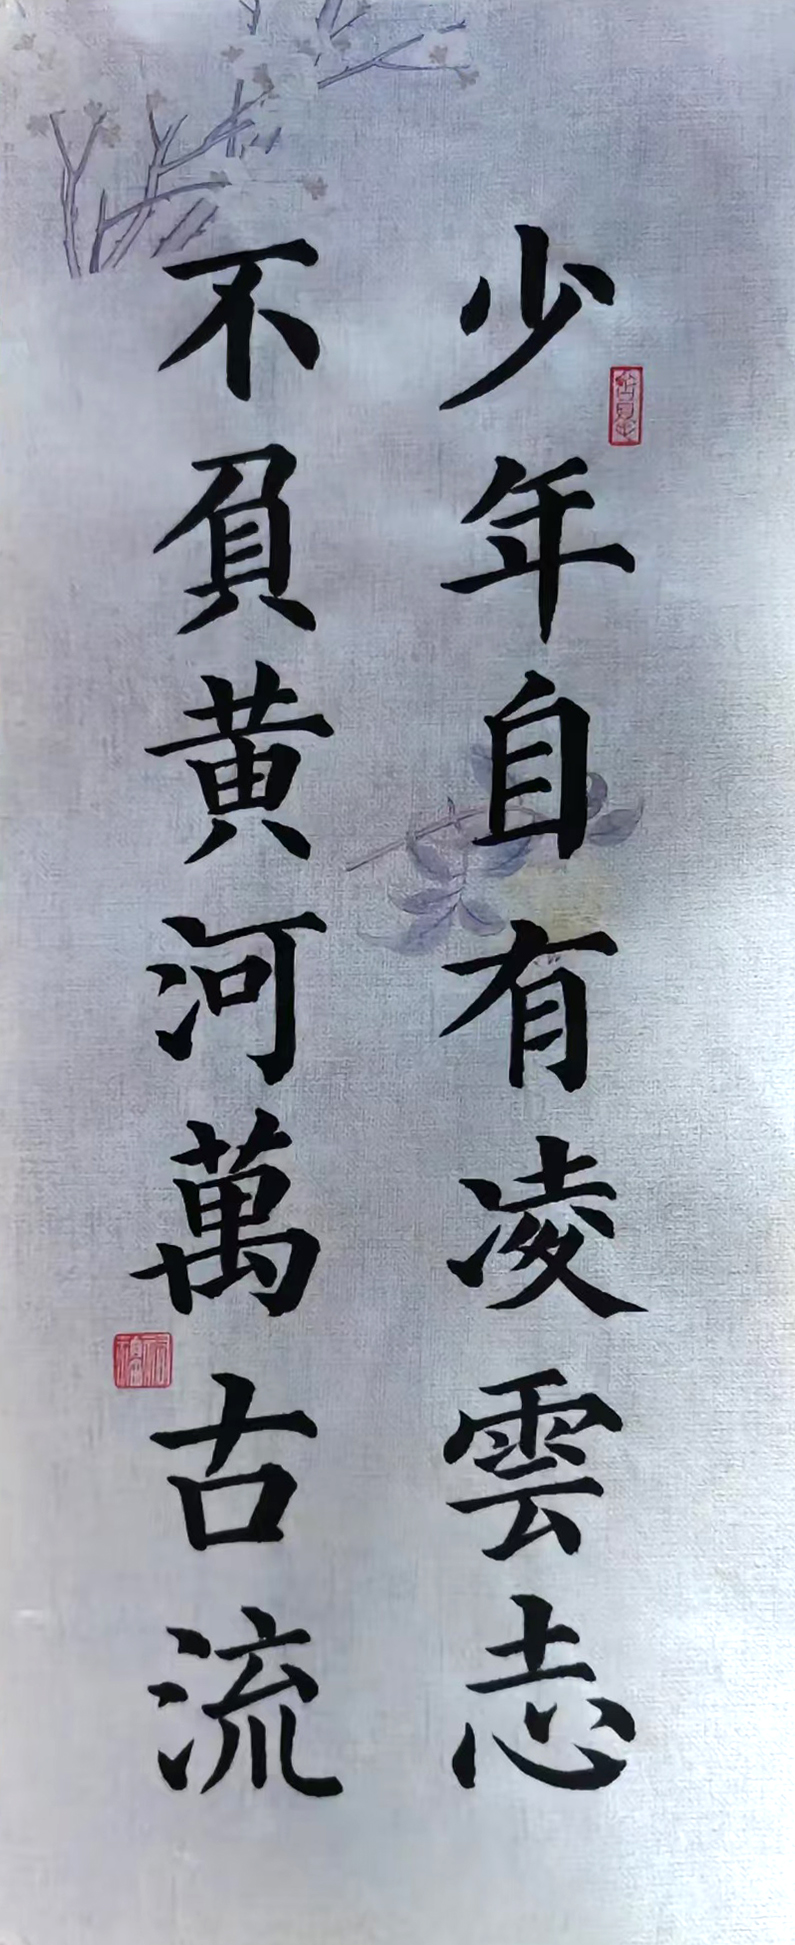 少年自有凌雲志
不負黄河萬古流